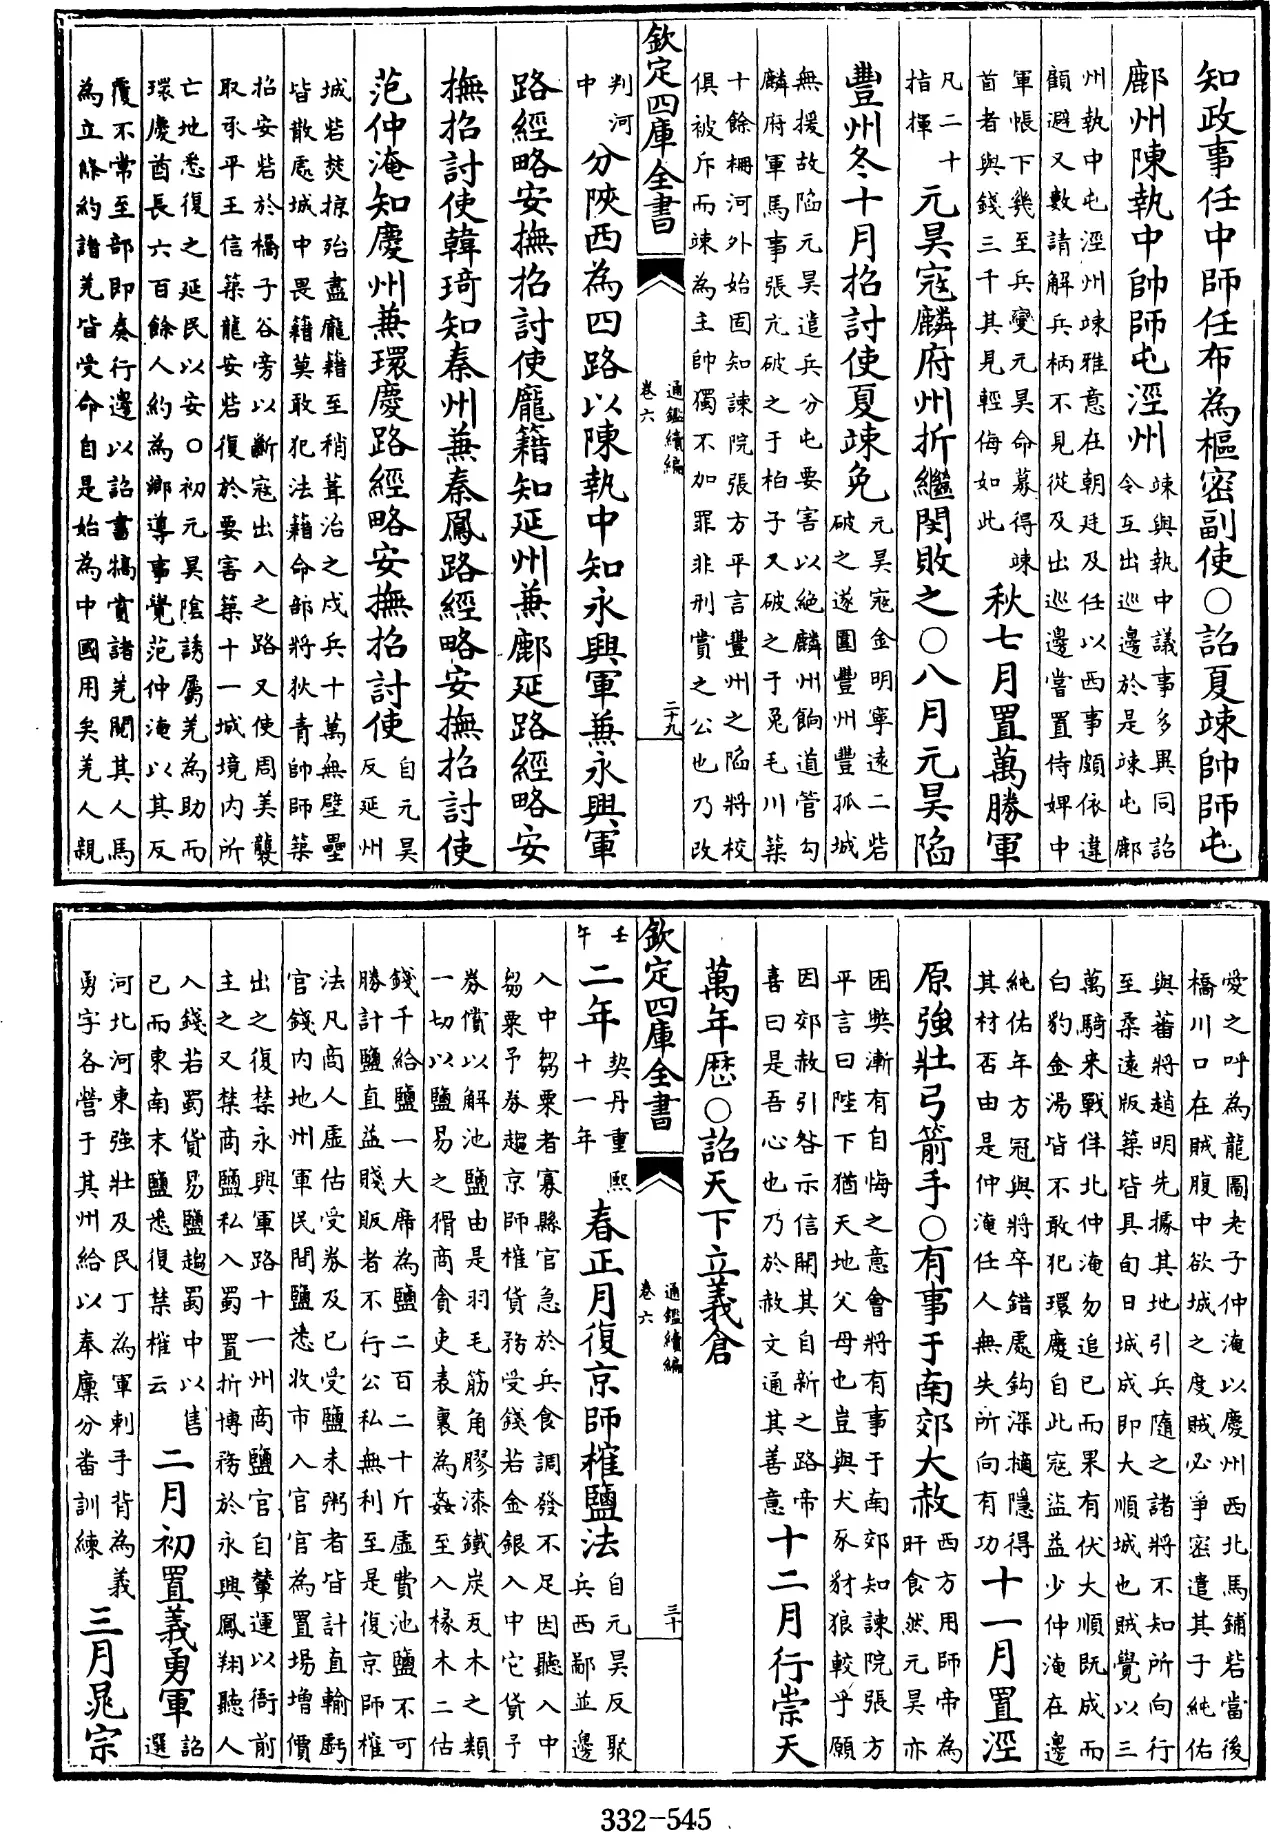 知政事任中師任布為樞密副使○詔夏竦帥師屯
鄜州陳執中帥師屯涇州
竦與執中議事多異同詔
令互出巡邊於是竦屯鄜
州執中屯涇州竦雅意在朝廷及任以西事頗依違
顧避又數請解兵柄不見從及出巡邊嘗置侍婢中
軍帳下幾至兵變元昊命募得竦
首者與錢三千其見輕侮如此
秋七月置萬勝軍
凡二十
指揮
元昊寇麟府州折繼閔敗之○八月元昊陷
豐州冬十月招討使夏竦免
元昊寇金明寧遠二砦
破之遂圍豐州豐孤城
無援故陷元昊遣兵分屯要害以絶麟州餉道管勾
麟府軍馬事張亢破之于柏子又破之于兔毛川築
十餘柵河外始固知諫院張方平言豐州之陷將校
俱被斥而竦為主帥獨不加罪非刑賞之公也乃改
欽定四庫全書
通鑑續編
卷六
二十九
判河
中
分陜西為四路以陳執中知永興軍兼永興軍
路經略安撫招討使龎籍知延州兼鄜延路經略安
撫招討使韓琦知秦州兼秦鳳路經略安撫招討使
范仲淹知慶州兼環慶路經略安撫招討使
自元昊
反延州
城砦焚掠殆盡龎籍至稍葺治之戍兵十萬無壁壘
皆散處城中畏籍莫敢犯法籍命部將狄青帥師築
招安砦於橋子谷旁以斷寇出入之路又使周美襲
取承平王信築龍安砦復於要害築十一城境内所
亡地悉復之延民以安○初元昊陰誘屬羌為助而
環慶酋長六百餘人約為鄉導事覺范仲淹以其反
覆不常至部即奏行邊以詔書犒賞諸羌閱其人馬
為立條約諸羌皆受命自是始為中國用矣羌人親
愛之呼為龍圖老子仲淹以慶州西北馬鋪砦當後
橋川口在賊腹中欲城之度賊必爭密遣其子純佑
與蕃將趙明先據其地引兵隨之諸將不知所向行
至柔遠版築皆具旬日城成即大順城也賊覺以三
萬騎來戰佯北仲淹勿追已而果有伏大順既成而
白豹金湯皆不敢犯環慶自此寇盜益少仲淹在邊
純佑年方冠與將卒錯處鈎深擿隱得
其材否由是仲淹任人無失所向有功
十一月置涇
原強壯弓箭手○有事于南郊大赦
西方用師帝為
旰食然元昊亦
困獘漸有自悔之意會將有事于南郊知諫院張方
平言曰陛下猶天地父母也豈與犬豕豺狼較乎願
因郊赦引咎示信開其自新之路帝
喜曰是吾心也乃於赦文通其善意
十二月行崇天
萬年厯○詔天下立義倉
欽定四庫全書
通鑑續編
卷六
三十
壬
午
二年
契丹重熙
十一年
春正月復京師榷鹽法
自元昊反聚
兵西鄙並邊
入中芻粟者寡縣官急於兵食調發不足因聽入中
芻粟予券趨京師榷貨務受錢若金銀入中它貨予
券償以解池鹽由是羽毛筋角膠漆鐵炭瓦木之類
一切以鹽易之猾商貪吏表裏為姦至入椽木二估
錢千給鹽一大席為鹽二百二十斤虛費池鹽不可
勝計鹽直益賤販者不行公私無利至是復京師榷
法凡商人虛估受券及已受鹽未粥者皆計直輸虧
官錢内地州軍民間鹽悉收市入官官為置場增價
出之復禁永興軍路十一州商鹽官自輦運以衙前
主之又禁商鹽私入蜀置折博務於永興鳳翔聽人
入錢若蜀貨易鹽趨蜀中以售
已而東南末鹽悉復禁榷云
二月初置義勇軍
詔
選
河北河東強壯及民丁為軍刺手背為義
勇字各營于其州給以奉廩分畨訓練
三月晁宗
332-545